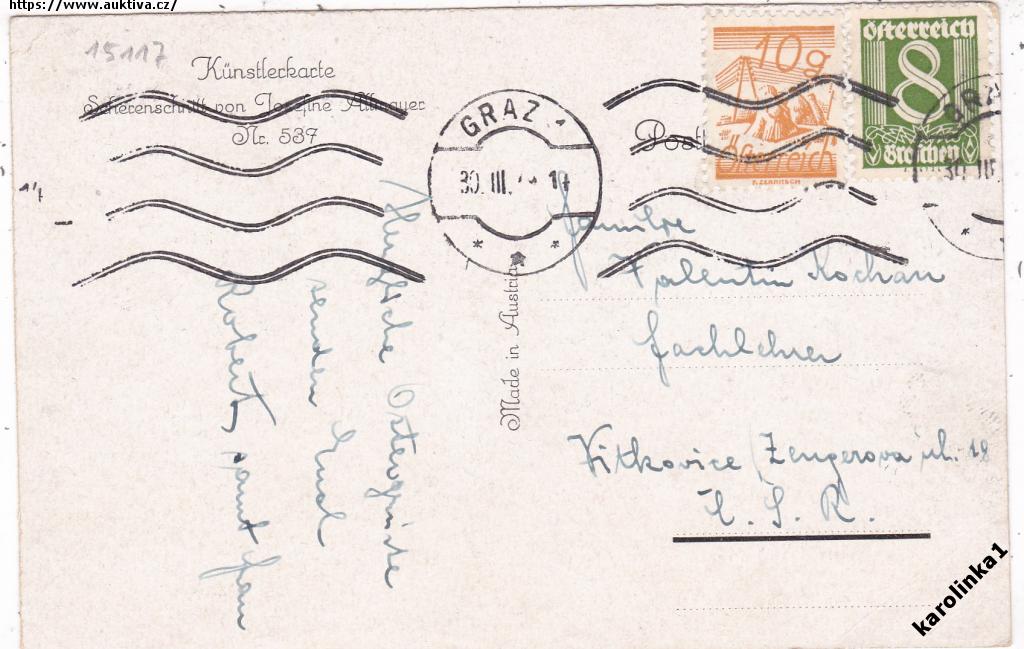 https://www.auktiva.cz/
15117
Künstlerkarte
Scherenschnitt von Josefine Allmayer
Nr. 537
GRAZ 1
30. III.
Made in Austria
10g
Österreich
österreich
8
Groschen
GRAZ
Familie
Valentin Kochan
Fachlehrer
Vitkovice, Zengerova ul. 18
Č. S. R.
Herzliche Ostergrüße
senden Euch
Robert samt Frau
karolinka1